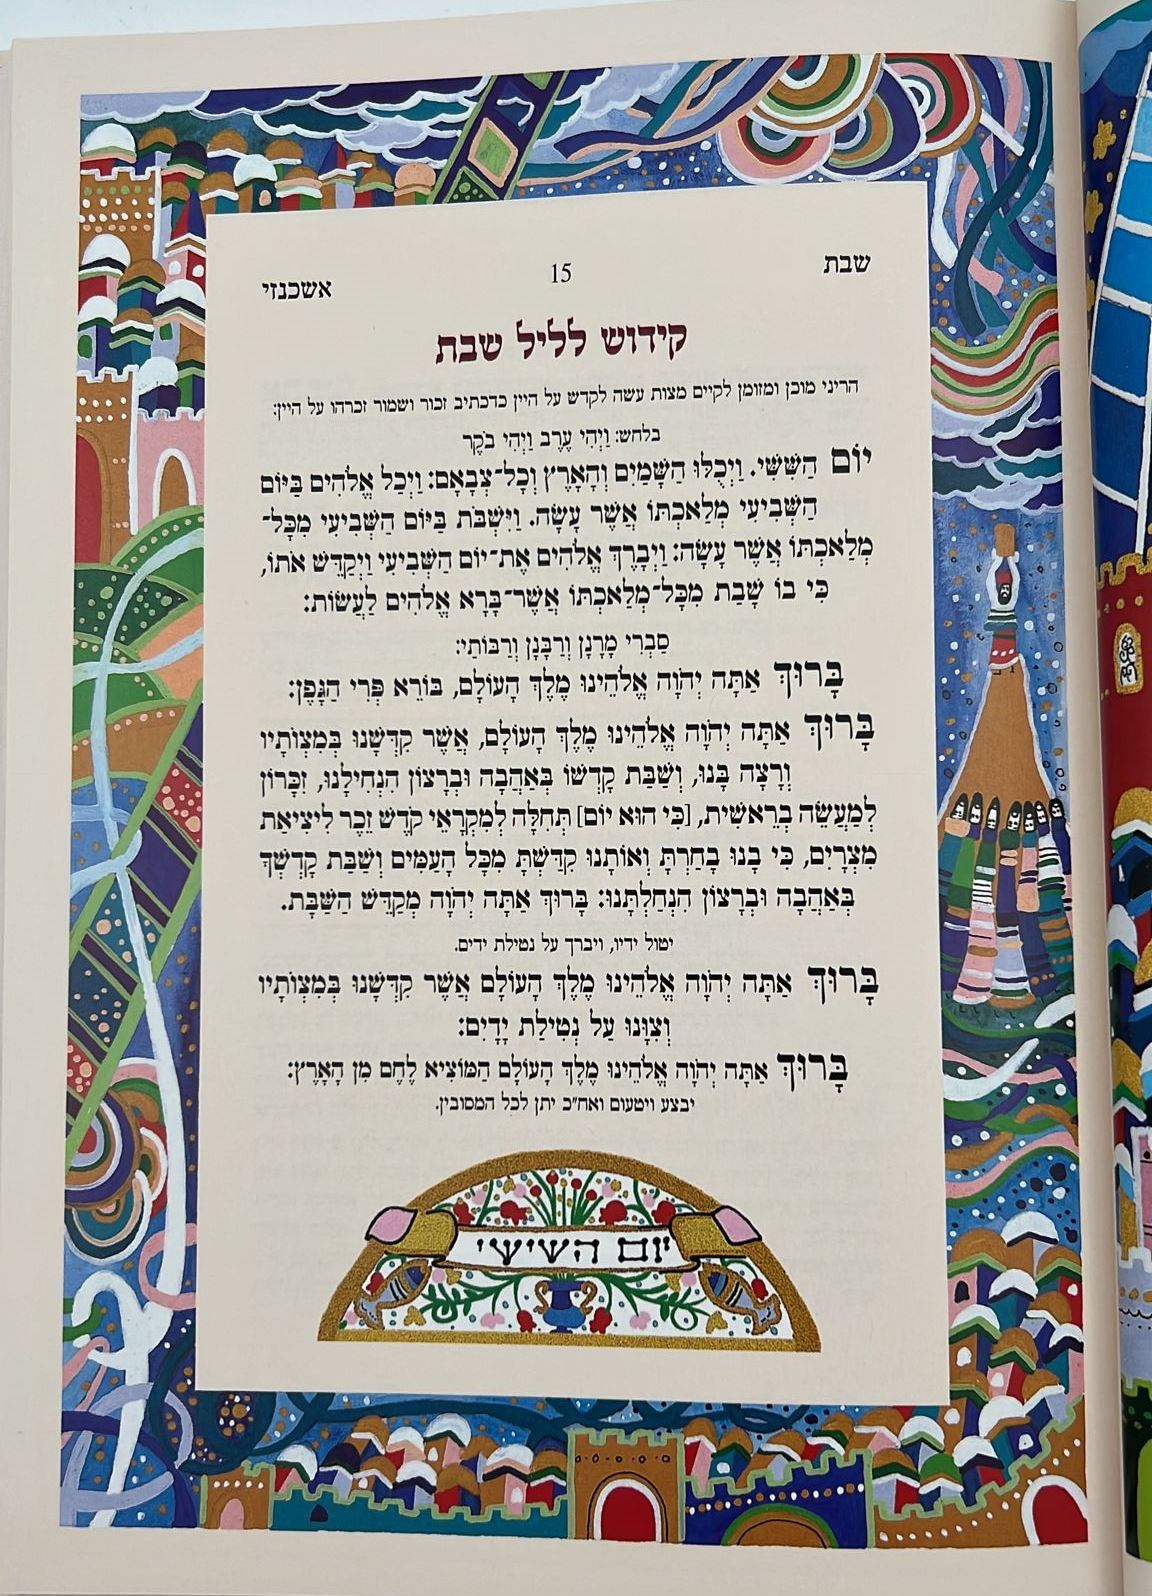 שבת
15
אשכנזי
קידוש לליל שבת
הריני מוכן ומזומן לקיים מצות עשה לקדש על היין כדכתיב זכור ושמור זכרהו על היין:
בלחש: וַיְהִי עֶרֶב וַיְהִי בֹקֶר
יוֹם הַשִּׁשִּׁי. וַיְכֻלּוּ הַשָּׁמַיִם וְהָאָרֶץ וְכָל־צְבָאָם: וַיְכַל אֱלֹהִים בַּיּוֹם
הַשְּׁבִיעִי מְלַאכְתּוֹ אֲשֶׁר עָשָׂה. וַיִּשְׁבֹּת בַּיּוֹם הַשְּׁבִיעִי מִכָּל־
מְלַאכְתּוֹ אֲשֶׁר עָשָׂה: וַיְבָרֶךְ אֱלֹהִים אֶת־יוֹם הַשְּׁבִיעִי וַיְקַדֵּשׁ אֹתוֹ,
כִּי בוֹ שָׁבַת מִכָּל־מְלַאכְתּוֹ אֲשֶׁר־בָּרָא אֱלֹהִים לַעֲשׂוֹת:
סַבְרִי מָרָנָן וְרַבָּנָן וְרַבּוֹתַי:
בָּרוּךְ אַתָּה יְהֹוָה אֱלֹהֵינוּ מֶלֶךְ הָעוֹלָם, בּוֹרֵא פְּרִי הַגָּפֶן:
בָּרוּךְ אַתָּה יְהֹוָה אֱלֹהֵינוּ מֶלֶךְ הָעוֹלָם, אֲשֶׁר קִדְּשָׁנוּ בְּמִצְוֹתָיו
וְרָצָה בָנוּ, וְשַׁבַּת קָדְשׁוֹ בְּאַהֲבָה וּבְרָצוֹן הִנְחִילָנוּ, זִכָּרוֹן
לְמַעֲשֵׂה בְרֵאשִׁית, [כִּי הוּא יוֹם] תְּחִלָּה לְמִקְרָאֵי קֹדֶשׁ זֵכֶר לִיצִיאַת
מִצְרָיִם, כִּי בָנוּ בָחַרְתָּ וְאוֹתָנוּ קִדַּשְׁתָּ מִכָּל הָעַמִּים וְשַׁבַּת קָדְשְׁךָ
בְּאַהֲבָה וּבְרָצוֹן הִנְחַלְתָּנוּ: בָּרוּךְ אַתָּה יְהֹוָה מְקַדֵּשׁ הַשַּׁבָּת.
יטול ידיו, ויברך על נטילת ידים.
בָּרוּךְ אַתָּה יְהֹוָה אֱלֹהֵינוּ מֶלֶךְ הָעוֹלָם אֲשֶׁר קִדְּשָׁנוּ בְּמִצְוֹתָיו
וְצִוָּנוּ עַל נְטִילַת יָדָיִם:
בָּרוּךְ אַתָּה יְהֹוָה אֱלֹהֵינוּ מֶלֶךְ הָעוֹלָם הַמּוֹצִיא לֶחֶם מִן הָאָרֶץ:
יבצע ויטעום ואח״כ יתן לכל המסובין.
יום השישי